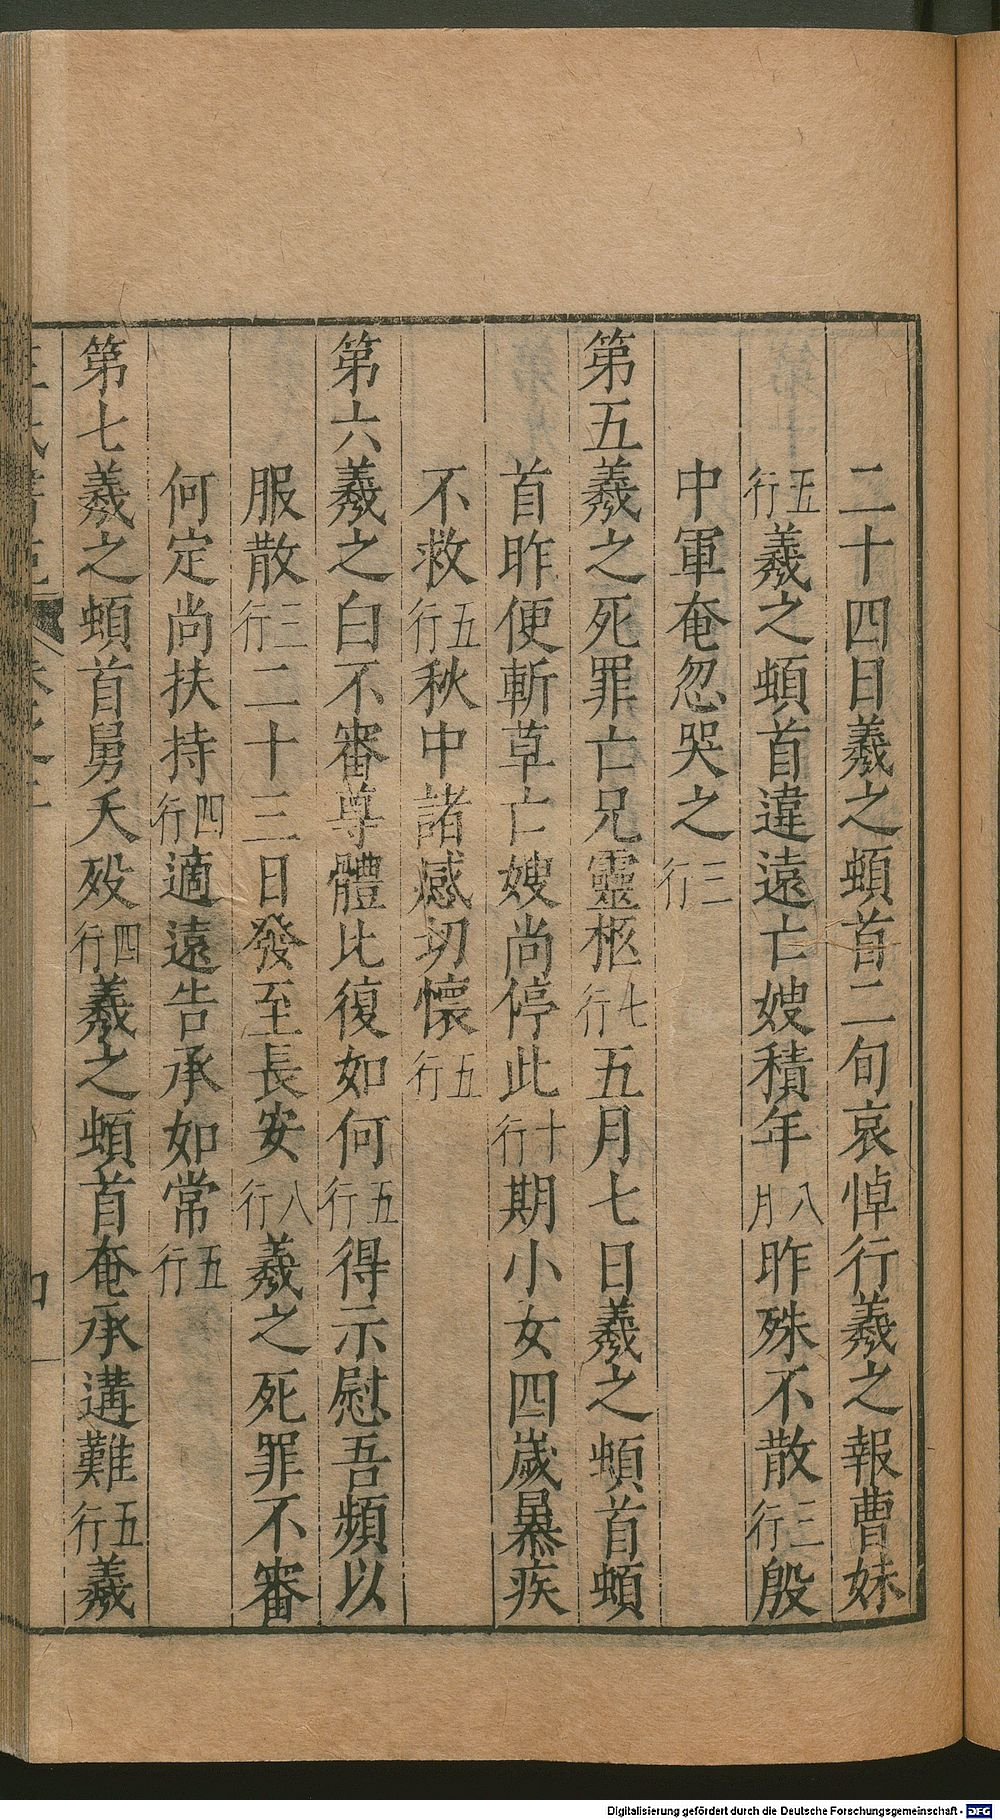 二十四日羲之頓首二旬哀悼行羲之報曹妹
五行羲之頓首違遠亡嫂積年八月昨殊不散三行殷
中軍奄忽哭之三行
第五羲之死罪亡兄靈柩七行五月七日羲之頓首頓
首昨便斬草亡嫂尚停此十行期小女四歲暴疾
不救五行秋中諸感切懷五行
第六羲之白不審尊體比復如何五行得示慰吾頻以
服散三行二十三日發至長安八行羲之死罪不審
何定尚扶持四行適遠告承如常五行
第七羲之頓首舅夭歿四行羲之頓首奄承遘難五行羲
Digitalisierung gefördert durch die Deutsche Forschungsgemeinschaft - DFG